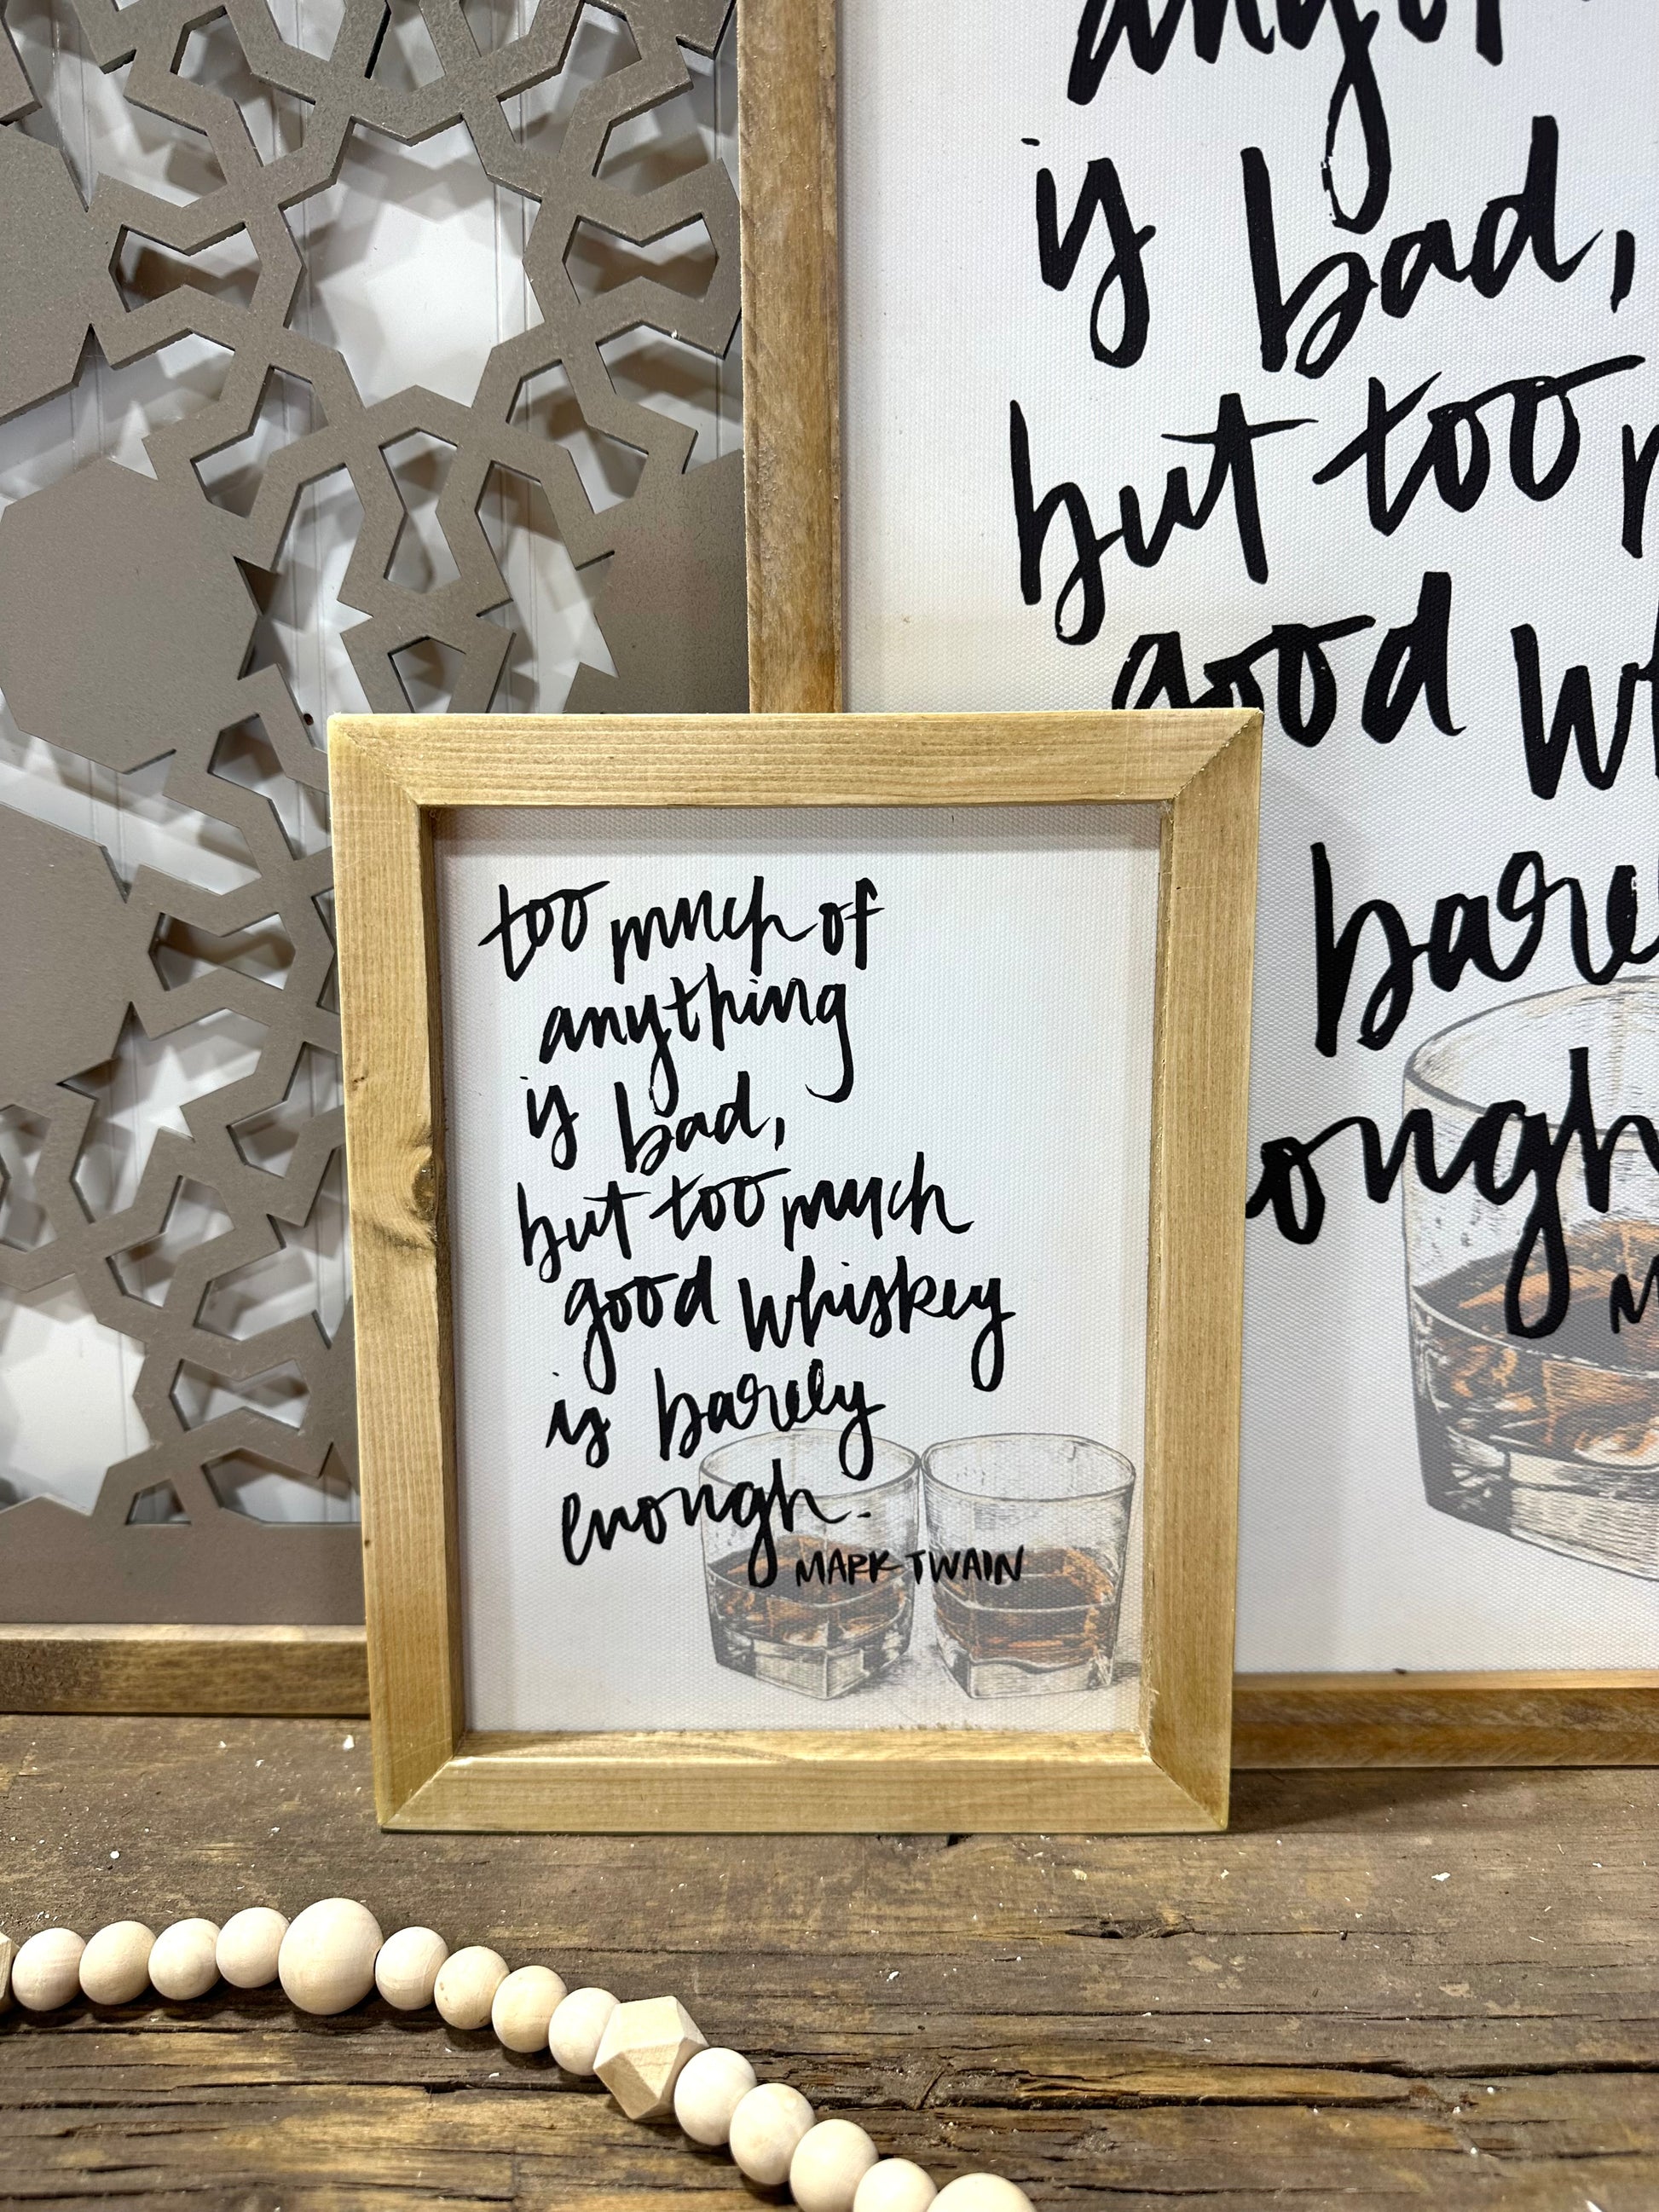 too much of
anything
is bad,
but too much
good whiskey
is barely
enough.
MARK TWAIN
is bad,
but too
good